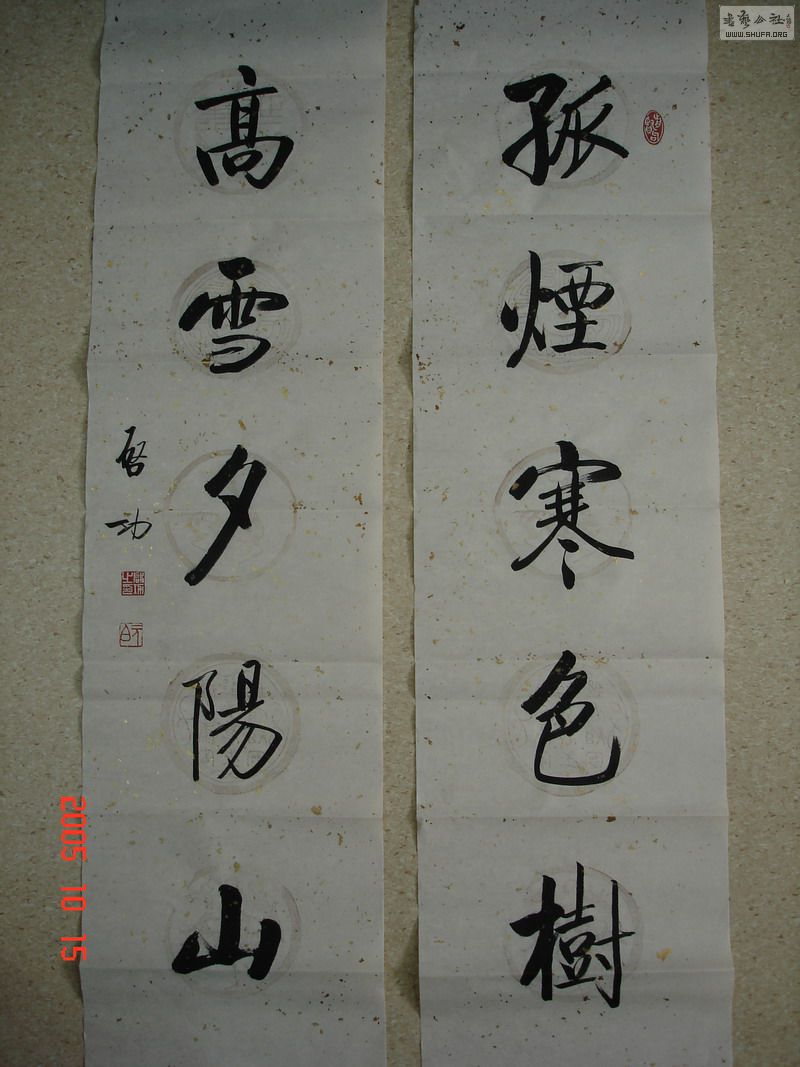 孤煙寒色樹
高雪夕陽山
啓功
2005 10 15
書藝公社
WWW.SHUFA.ORG